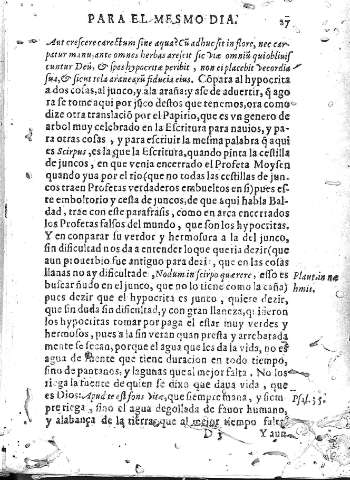 PARA EL MESMO DIA. 27
Aut crescere carectum sine aqua? Cũ adhuc sit in flore, nec car
patur manu, ante omnes herbas arescit sic viæ omniũ qui obliuis
cuntur Deũ, & spes hypocritæ peribit, non ei placebit vecordia
sua, & sicut tela aranearũ fiducia eius. Cõpara al hypocrita
a dos cosas, al junco, y ala araña; y ase de aduertir, q̃ ago
ra se tome aqui por jũco destos que tenemos, ora como
dize otra translaciõ por el Papirio, que es vn genero de
arbol muy celebrado en la Escritura para nauios, y pa-
ra otras cosas, y para escriuir la mesma palabra q̃ aqui
es Scirpus, es la que la Escritura, quando pinta la cestilla
de juncos, en que venia encerrado el Profeta Moysen
quando yua por el rio (que no todas las cestillas de jun-
cos traen Profetas verdaderos embueltos en si) pues es-
te emboltorio y cesta de juncos, de que aqui habla Bal-
dad, trae con este parafrasis, como en arca encerrados
los Profetas falsos del mundo, que son los hypocritas.
Y en conparar su verdor y hermosura a la del junco,
sin dificultad nos da a entender lo que queria dezir (que
aun prouerbio fue antiguo para dezir, que en las cosas
llanas no ay dificultad e, Nodum in scirpo quærere, esso es
Plaut. in næ
buscar ñudo en el junco, que no lo tiene como la caña)
hmit.
pues dezir que el hypocrita es junco, quiere dezir,
que sin duda sin dificultad, y con gran llaneza, quisieron
los hypocritas tomar por paga el estar muy verdes y
hermosos, pues a la sin veran quan presta y arrebatada
mente se secan, porque el agua que les da la vida, no es
agua de fuente que tiene duracion en todo tiempo,
sino de pantanos, y lagunas que al mejor falta. No los
riega la fuente de quien se dixo que daua vida, que
es Dios: Apud te est fons vitæ, que siempre mana, y siem
Psal. 35.
pre riega, sino el agua degollada de fauor humano,
y alabança de la tierra, que al mejor tiempo falta
D 3 Y aun